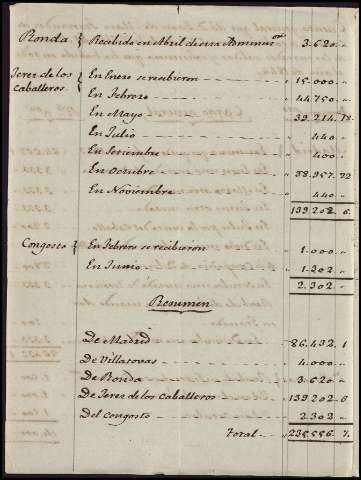 Ronda { Recibido en Abril de esta Adminis.on " 3.620 "
Jerez de los caballeros { En Enero se recibieron " 15.000 "
En Febrero " 44.750 "
En Mayo " 39.214. 18
En Julio " 440 "
En Setiembre " 400 "
En Octubre " 38.957. 22
En Noviembre " 440 "
139.202. 6.
Congosto { En Febrero se recibieron " 1.000 "
En Junio " 1.302 "
2.302 "
Resumen
De Madrid " 86.432. 1
De Villatovas " 4.000 "
De Ronda " 3.620 "
De Jerez de los caballeros " 139.202. 6
Del Congosto " 2.302 "
Total " 235.556. 7.